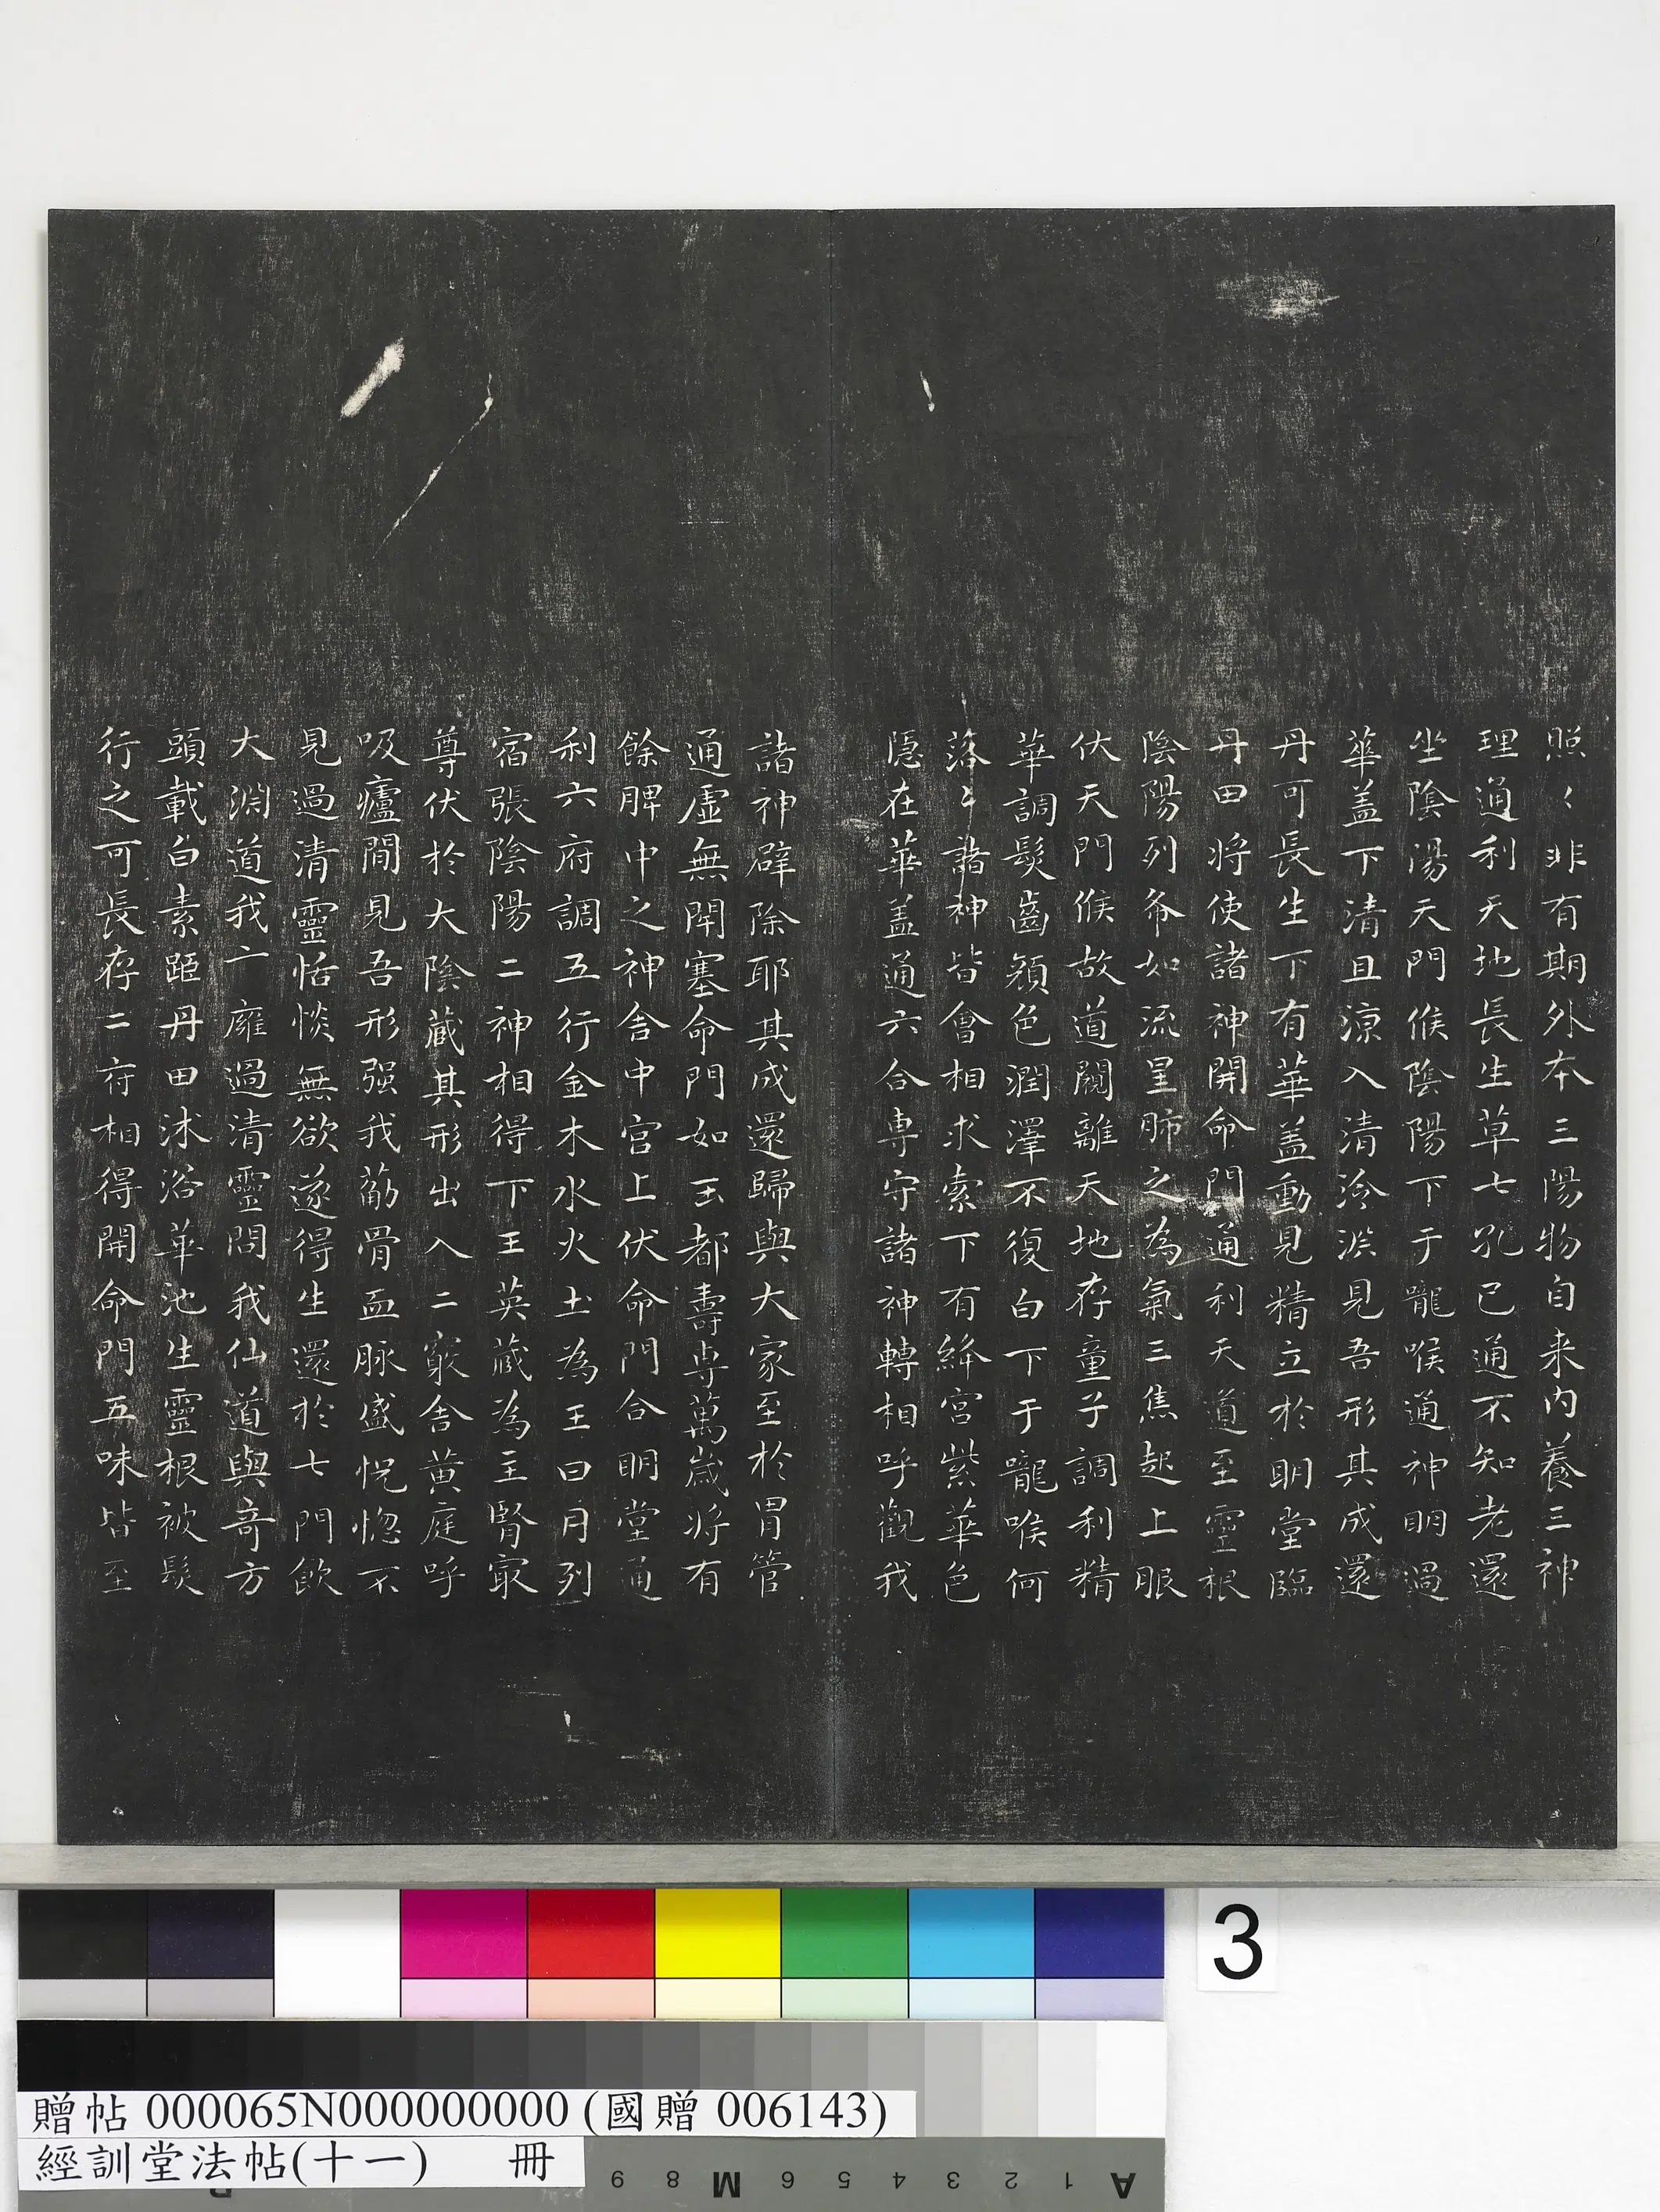 照〻非有期外本三陽物自来内養三神
理通利天地長生草七孔已通不知老還
坐陰陽天門候陰陽下于嚨喉通神明過
華盖下清且涼入清泠淵見吾形其成還
丹可長生下有華盖動見精立於明堂臨
丹田将使諸神開命門通利天道至靈根
陰陽列布如流星肺之為氣三焦起上服
伏天門候故道闚離天地存童子調利精
華調髮齒顏色潤澤不復白下于嚨喉何
落〻諸神皆會相求索下有絳宮紫華色
隱在華盖通六合専守諸神轉相呼觀我
諸神辟除耶其成還歸與大家至於胃管
通虛無閇塞命門如玉都壽専萬嵗将有
餘脾中之神舍中宮上伏命門合明堂通
利六府調五行金木水火土為王日月列
宿張陰陽二神相得下王英藏為主腎㝡
尊伏於大陰藏其形出入二竅舍黄庭呼
吸廬間見吾形强我筋骨血脉盛恍惚不
見過清靈恬惔無欲遂得生還於七門飲
大淵道我亠癰過清靈問我仙道與奇方
頭載白素距丹田沐浴華池生靈根被髮
行之可長存二府相得開命門五味皆至
3
贈帖 000065N000000000 (國贈 006143)
經訓堂法帖(十一) 冊
9 8 M 6 5 4 3 2 1 A